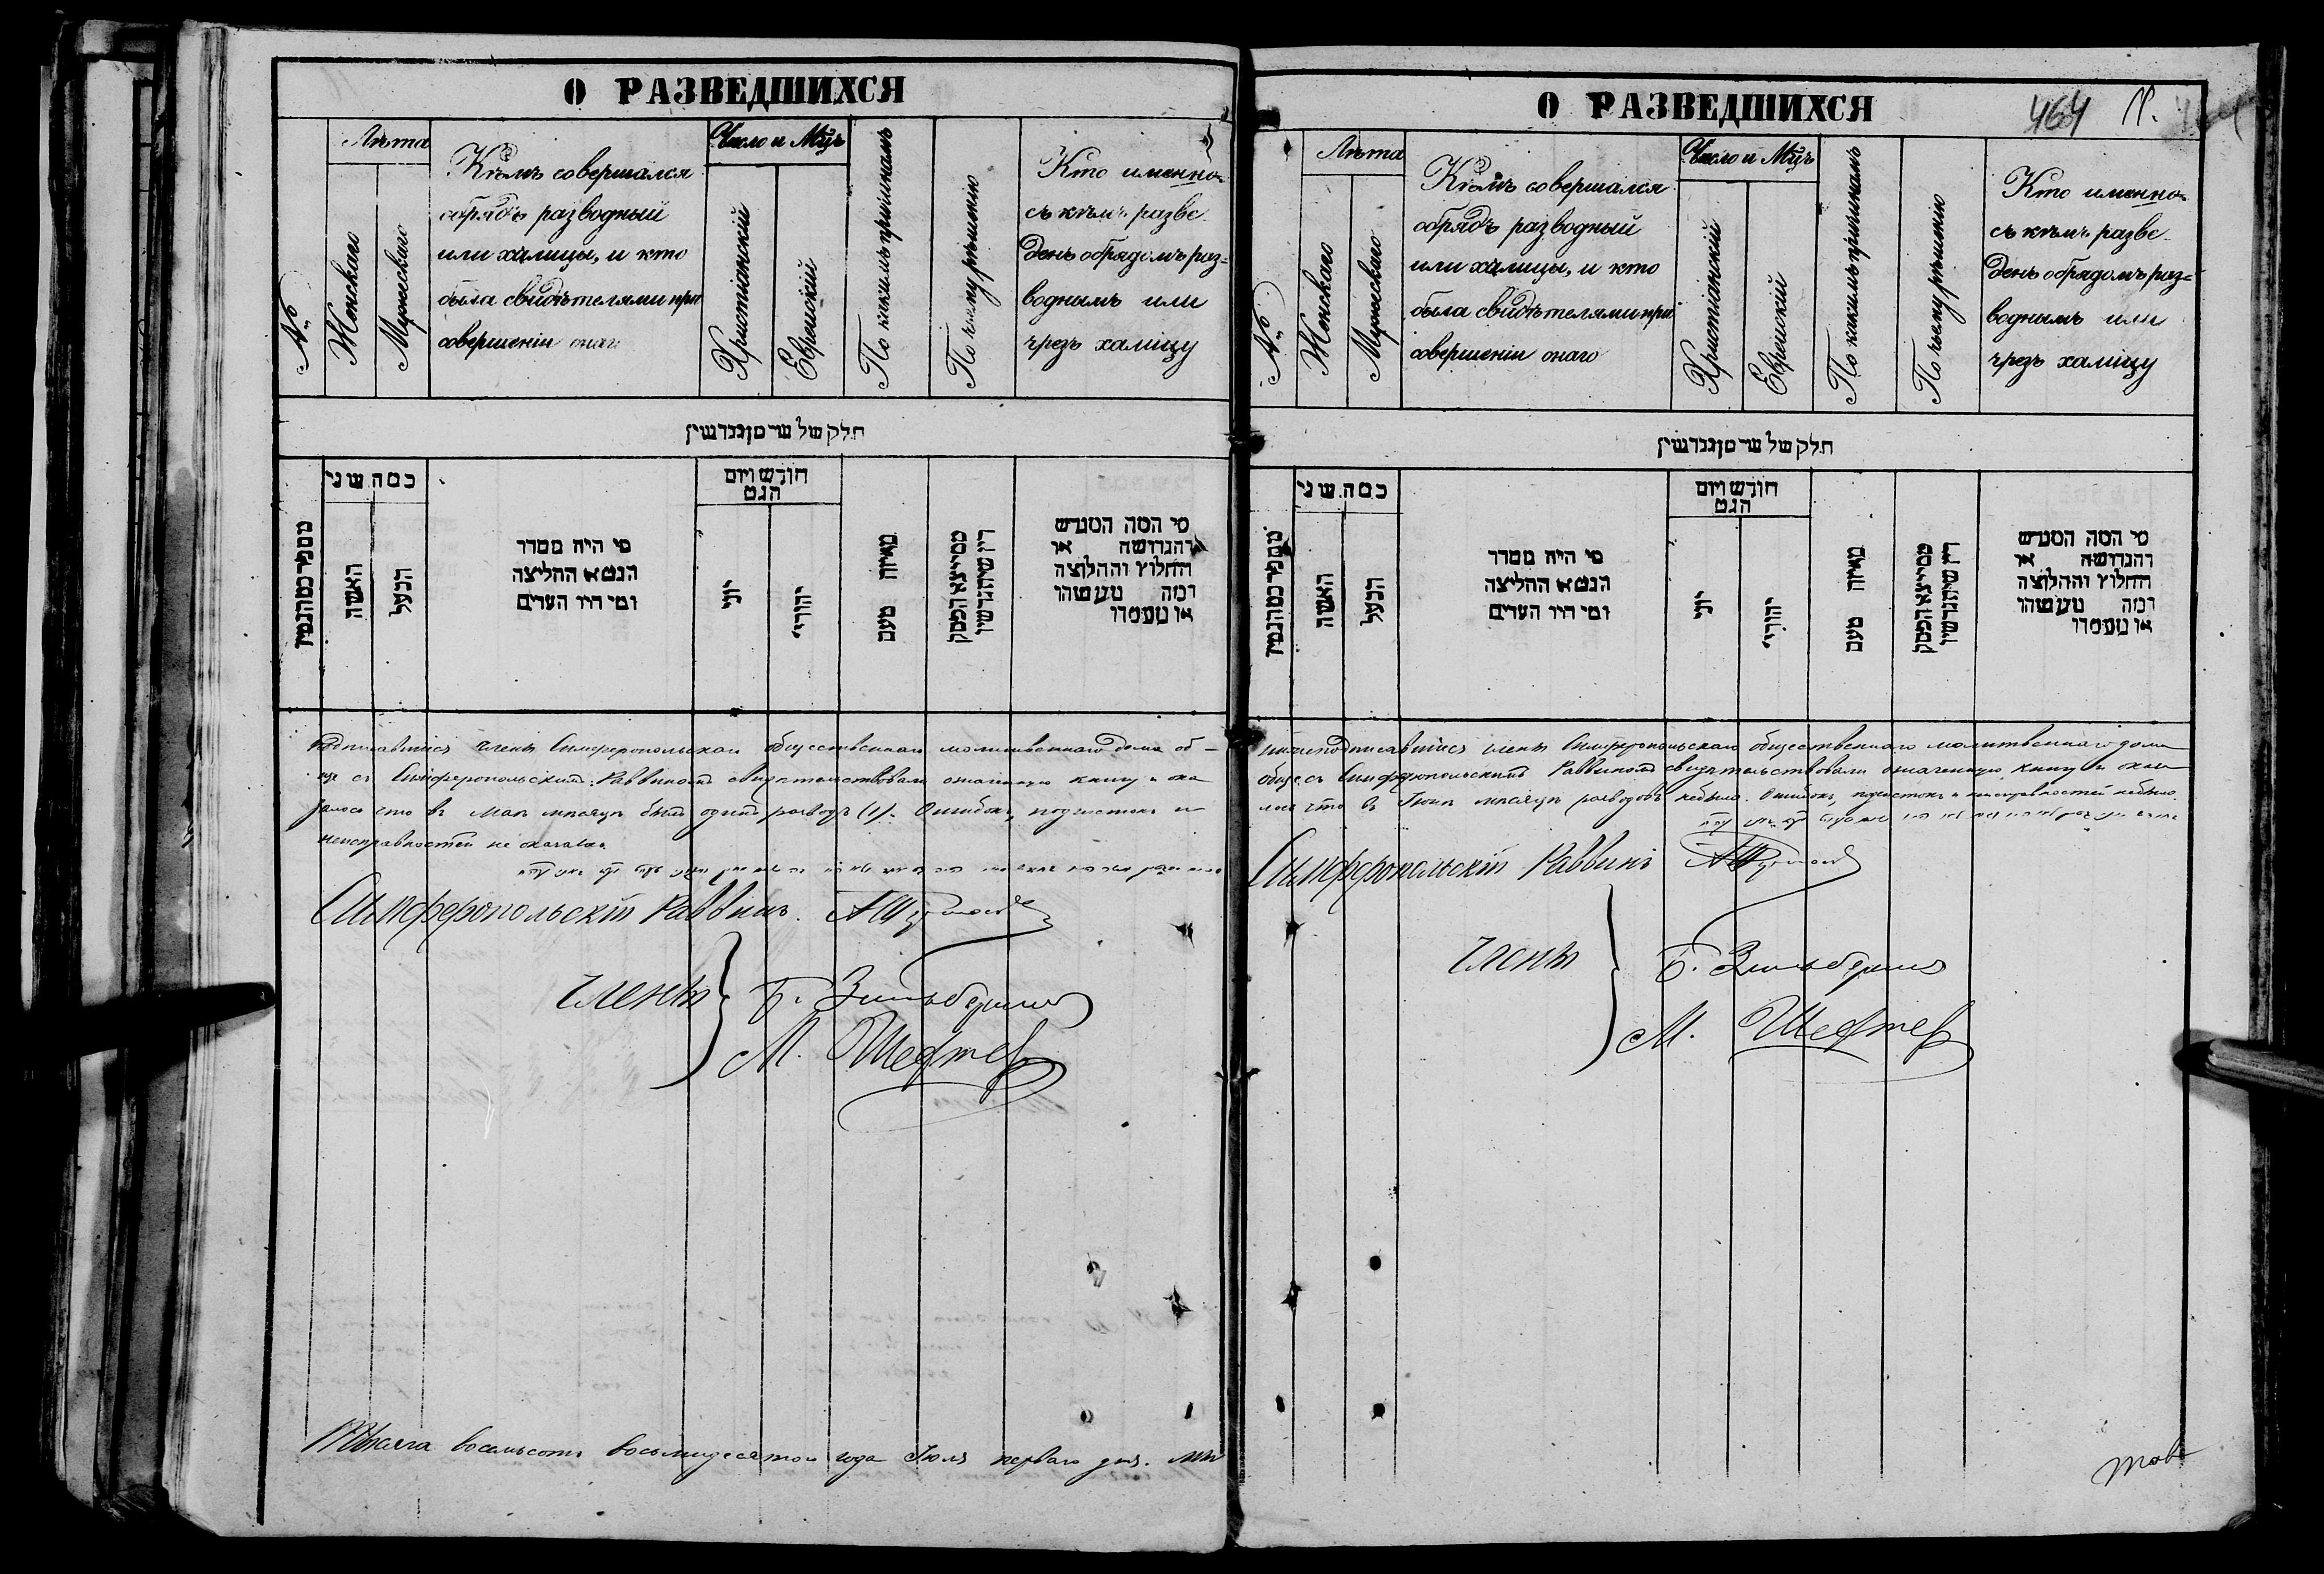 О РАЗВЕДШИХСЯ
№
Лѣта
Женскаго
Мужескаго
Кѣмъ совершался
обрядъ разводный
или халицы, и кто
была свидѣтелями при
совершеніи онаго
Число и Мцъ
Христіанскій
Еврейскій
По какимъ причинамъ
По чьему рѣшенію
Кто именно
съ кѣмъ разве-
денъ обрядомъ раз-
воднымъ или
чрезъ халицу
חלק של
כמה שני
האשה
הבעל
מי היה מסדר
הגט או החליצה
ומי היו העדים
חודש ויום
הגט
יוני
יהודיי
מאיזה טעם
מי המה המגרש
והגרושה או
החלוץ והחלוצה
ומה מעשהו
או מעמדו
подписавшіеся члены Симферопольскаго общественнаго молитвеннаго дома об-
ще съ Симферопольскимъ Раввиномъ свидѣтельствовали означенную книгу и ока
залось что въ Маѣ мѣсяцѣ былъ одинъ разводъ (1). Ошибокъ, подчистокъ и
неисправностей не оказалось
Симферопольскій Раввинъ.
Члены
М. Шефтер
Тысяча восемьсотъ восьмидесятого года Іюля перваго дня. Мы
О РАЗВЕДШИХСЯ
464
11.
№
Лѣта
Женскаго
Мужескаго
Кѣмъ совершался
обрядъ разводный
или халицы, и кто
была свидѣтелями при
совершеніи онаго
Число и Мцъ
Христіанскій
Еврейскій
По какимъ причинамъ
По чьему рѣшенію
Кто именно
съ кѣмъ разве-
денъ обрядомъ раз-
воднымъ или
чрезъ халицу
חלק של
כמה שני
האשה
הבעל
מי היה מסדר
הגט או החליצה
ומי היו העדים
חודש ויום
הגט
יוני
יהודיי
מאיזה טעם
מי המה המגרש
והגרושה או
החלוץ והחלוצה
ומה מעשהו
או מעמדו
нижеподписавшіеся члены Симферопольскаго общественнаго молитвеннаго дома
обще съ Симферопольскимъ Раввиномъ свидѣтельствовали означенную книгу и оказа
лось что въ Іюнѣ мѣсяцѣ разводовъ небыло. Ошибокъ, подчистокъ и неисправностей небыло.
Симферопольскій Раввинъ
Члены
М. Шефтер